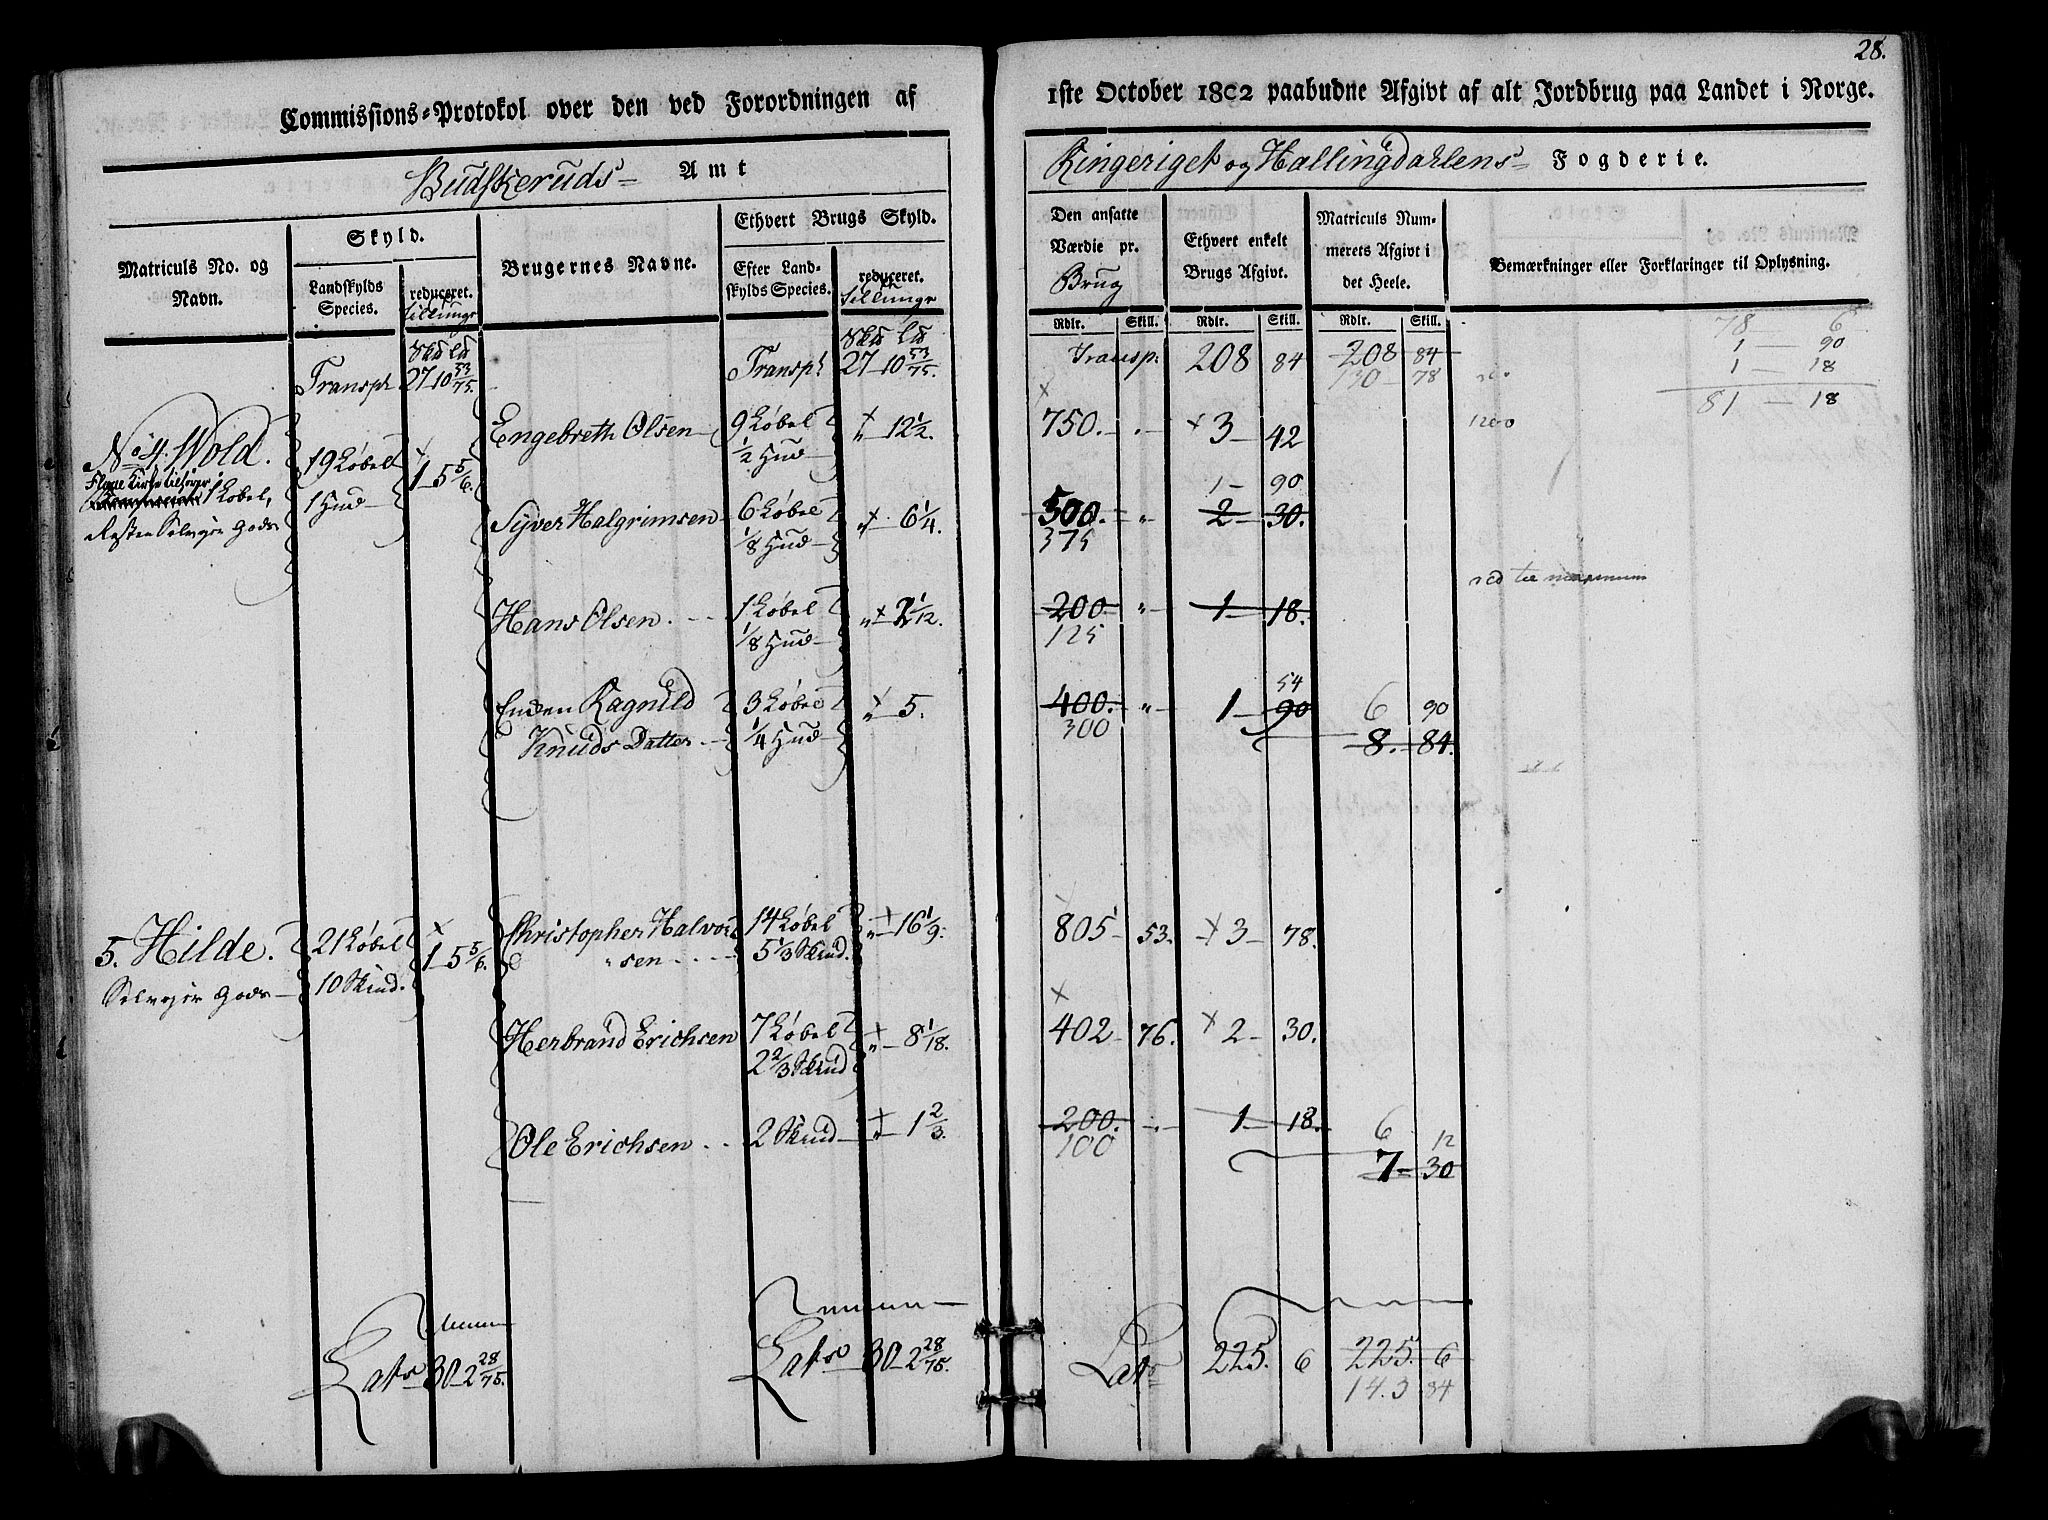 28.
Commissions-Protokol over den ved Forordningen af
1ste October 1802 paabudne Afgivt af alt Jordbrug paa Landet i Norge.
Budskeruds- Amt
Ringeriget og Hallingdahlens- Fogderie.
Matriculs No. og Navn.
Skyld.
Landskylds Species.
reduceret.
Brugernes Navne.
Ethvert Brugs Skyld.
Efter Landskylds Species.
reduceret.
Den ansatte Værdie pr. Brug
Ethvert enkelt Brugs Afgivt.
Matriculs Nummerets Afgivt i det Heele.
Bemærkninger eller Forklaringer til Oplysning.
Rdlr. Skill. Rdlr. Skill. Rdlr. Skill.
Transpt 27-10 53/75. Transpt 27-10 53/75. Transp. 208 84 208 84
130 78
78 6
1 — 90
1 — 18
81 — 18
No 4. Wold. 19 Løbel 1 Hud 1-5 5/6.
1 Løbel,
Resten Selveier Gods
Engebreth Olsen 9 Løbel 1/2 Hud 12 1/2. 750. 3- 42
1200
Syver Halgrimsen 6 Løbel 1/8 Hud 6 1/4. 500. 2- 30.
375 1- 90
Hans Olsen 1 Løbel 1/8 Hud 2 1/12. 200. 1- 18.
125
red til maximum
Enken Ragnild Knuds Datter 3 Løbel 1/4 Hud 5. 400. 1- 90
300 54 6 90
8. 84.
5. Hilde. 21 Løbel 10 Skind. 1-5 5/6.
Selveier Gods
Christopher Halvorsen 14 Løbel 5 1/3 Skind. 16 1/9. 805 53. 3- 78.
Herbrand Erichsen 7 Løbel 2 2/3 Skind 8 1/18. 402 76. 2- 30.
Ole Erichsen 2 Skind 1 2/3. 200. 1- 18.
100 6 12
7- 30
Lats 30-2 28/75. Lats 30-2 28/75. Lats 225. 6 225. 6
143 84